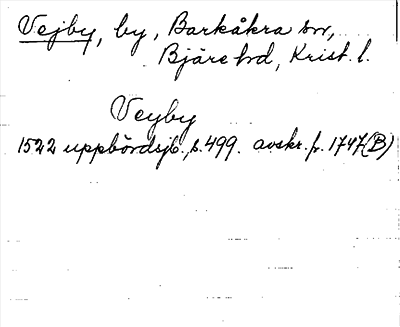 Vejby, by, Barkåkra sn,
Bjäre hd, Krist. l.
Veyby
1522 uppbördsjb., s. 499. avskr. fr. 1747(B)